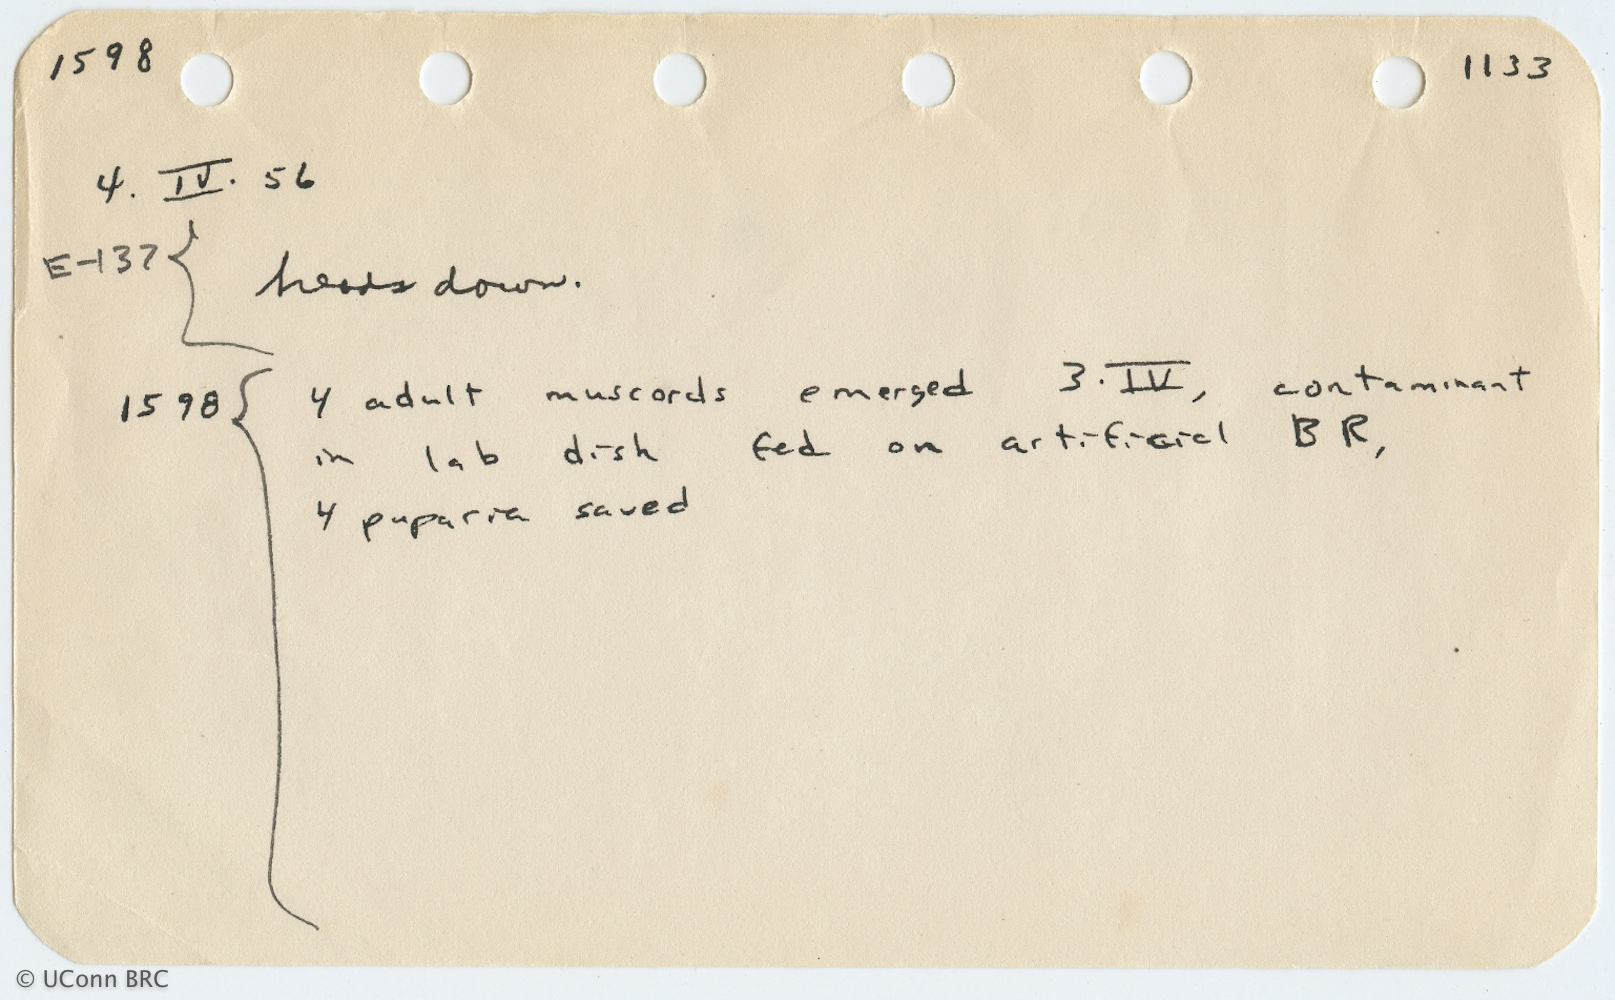 1598 1133
4. IV. 56
E-137 { heads down.
1598 { 4 adult muscoids emerged 3. IV, contaminant
in lab dish fed on artificial BR,
4 puparia saved
© UConn BRC